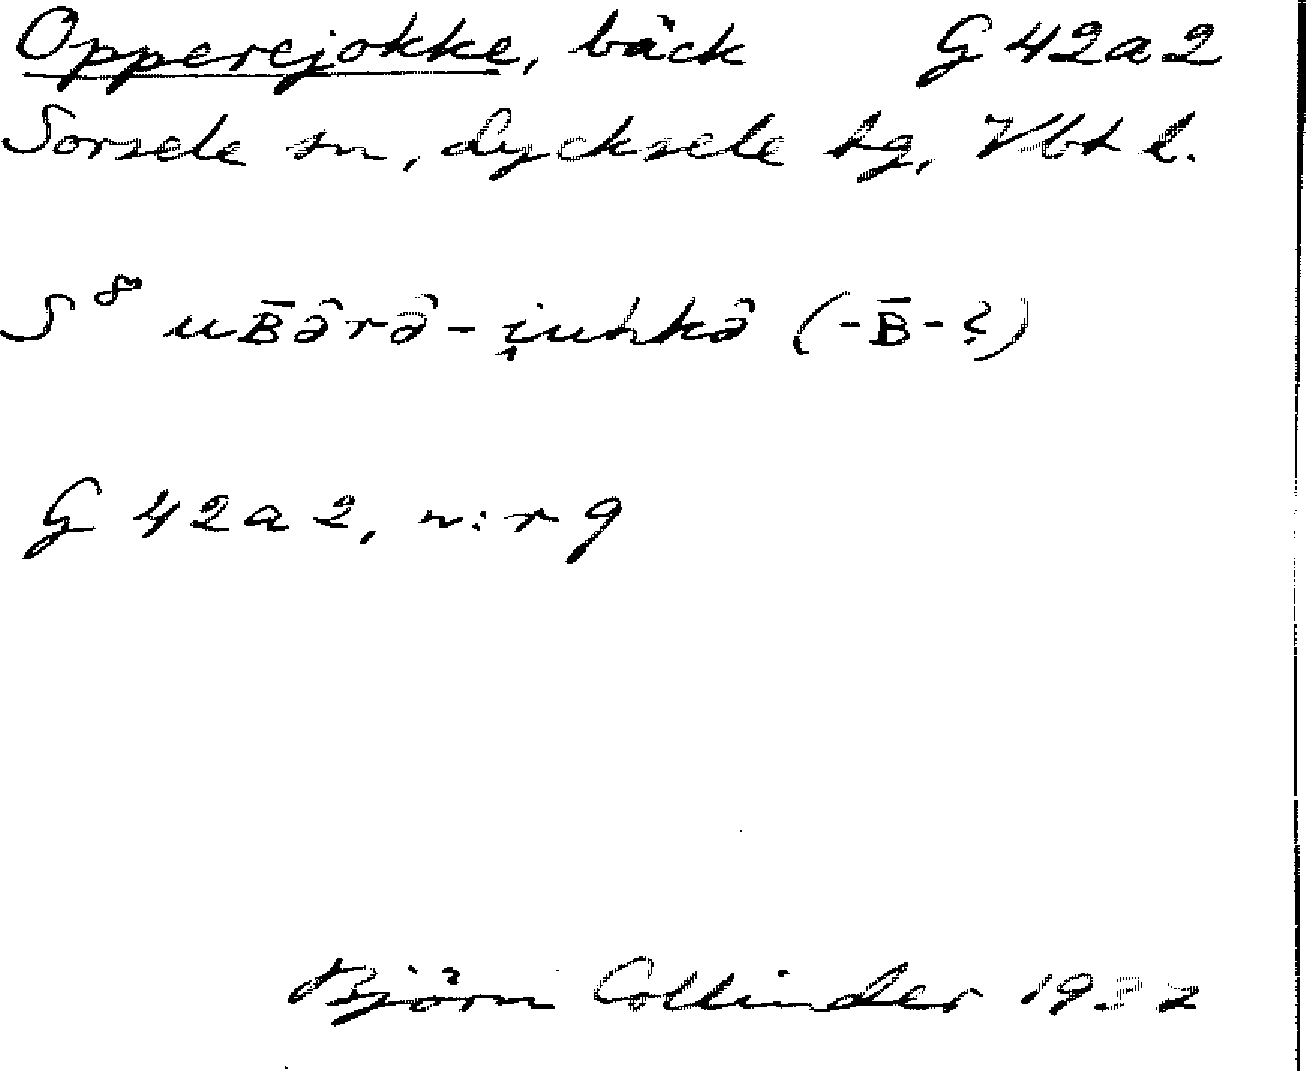 Opperejokke, bäck G 42a2
Sorsele sn, Lycksele tg, Vbt l.
S⁸ uB̄ə̂rə̂-i̯uhkə̂ (-B̄-?)
G 42a2, n:r 9
Björn Collinder 1932